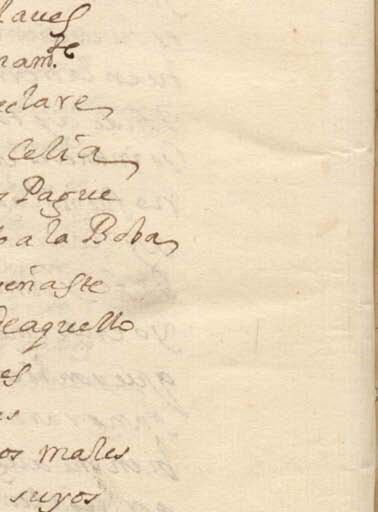 llaues
nam.te
eclare
Celia
Pague
a la Boba
eñaste
deaquello
es
es
os males
suyos